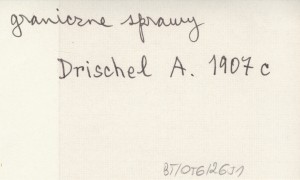 graniczne sprawy
Drischel A. 1907 c
BT/OTG/2651